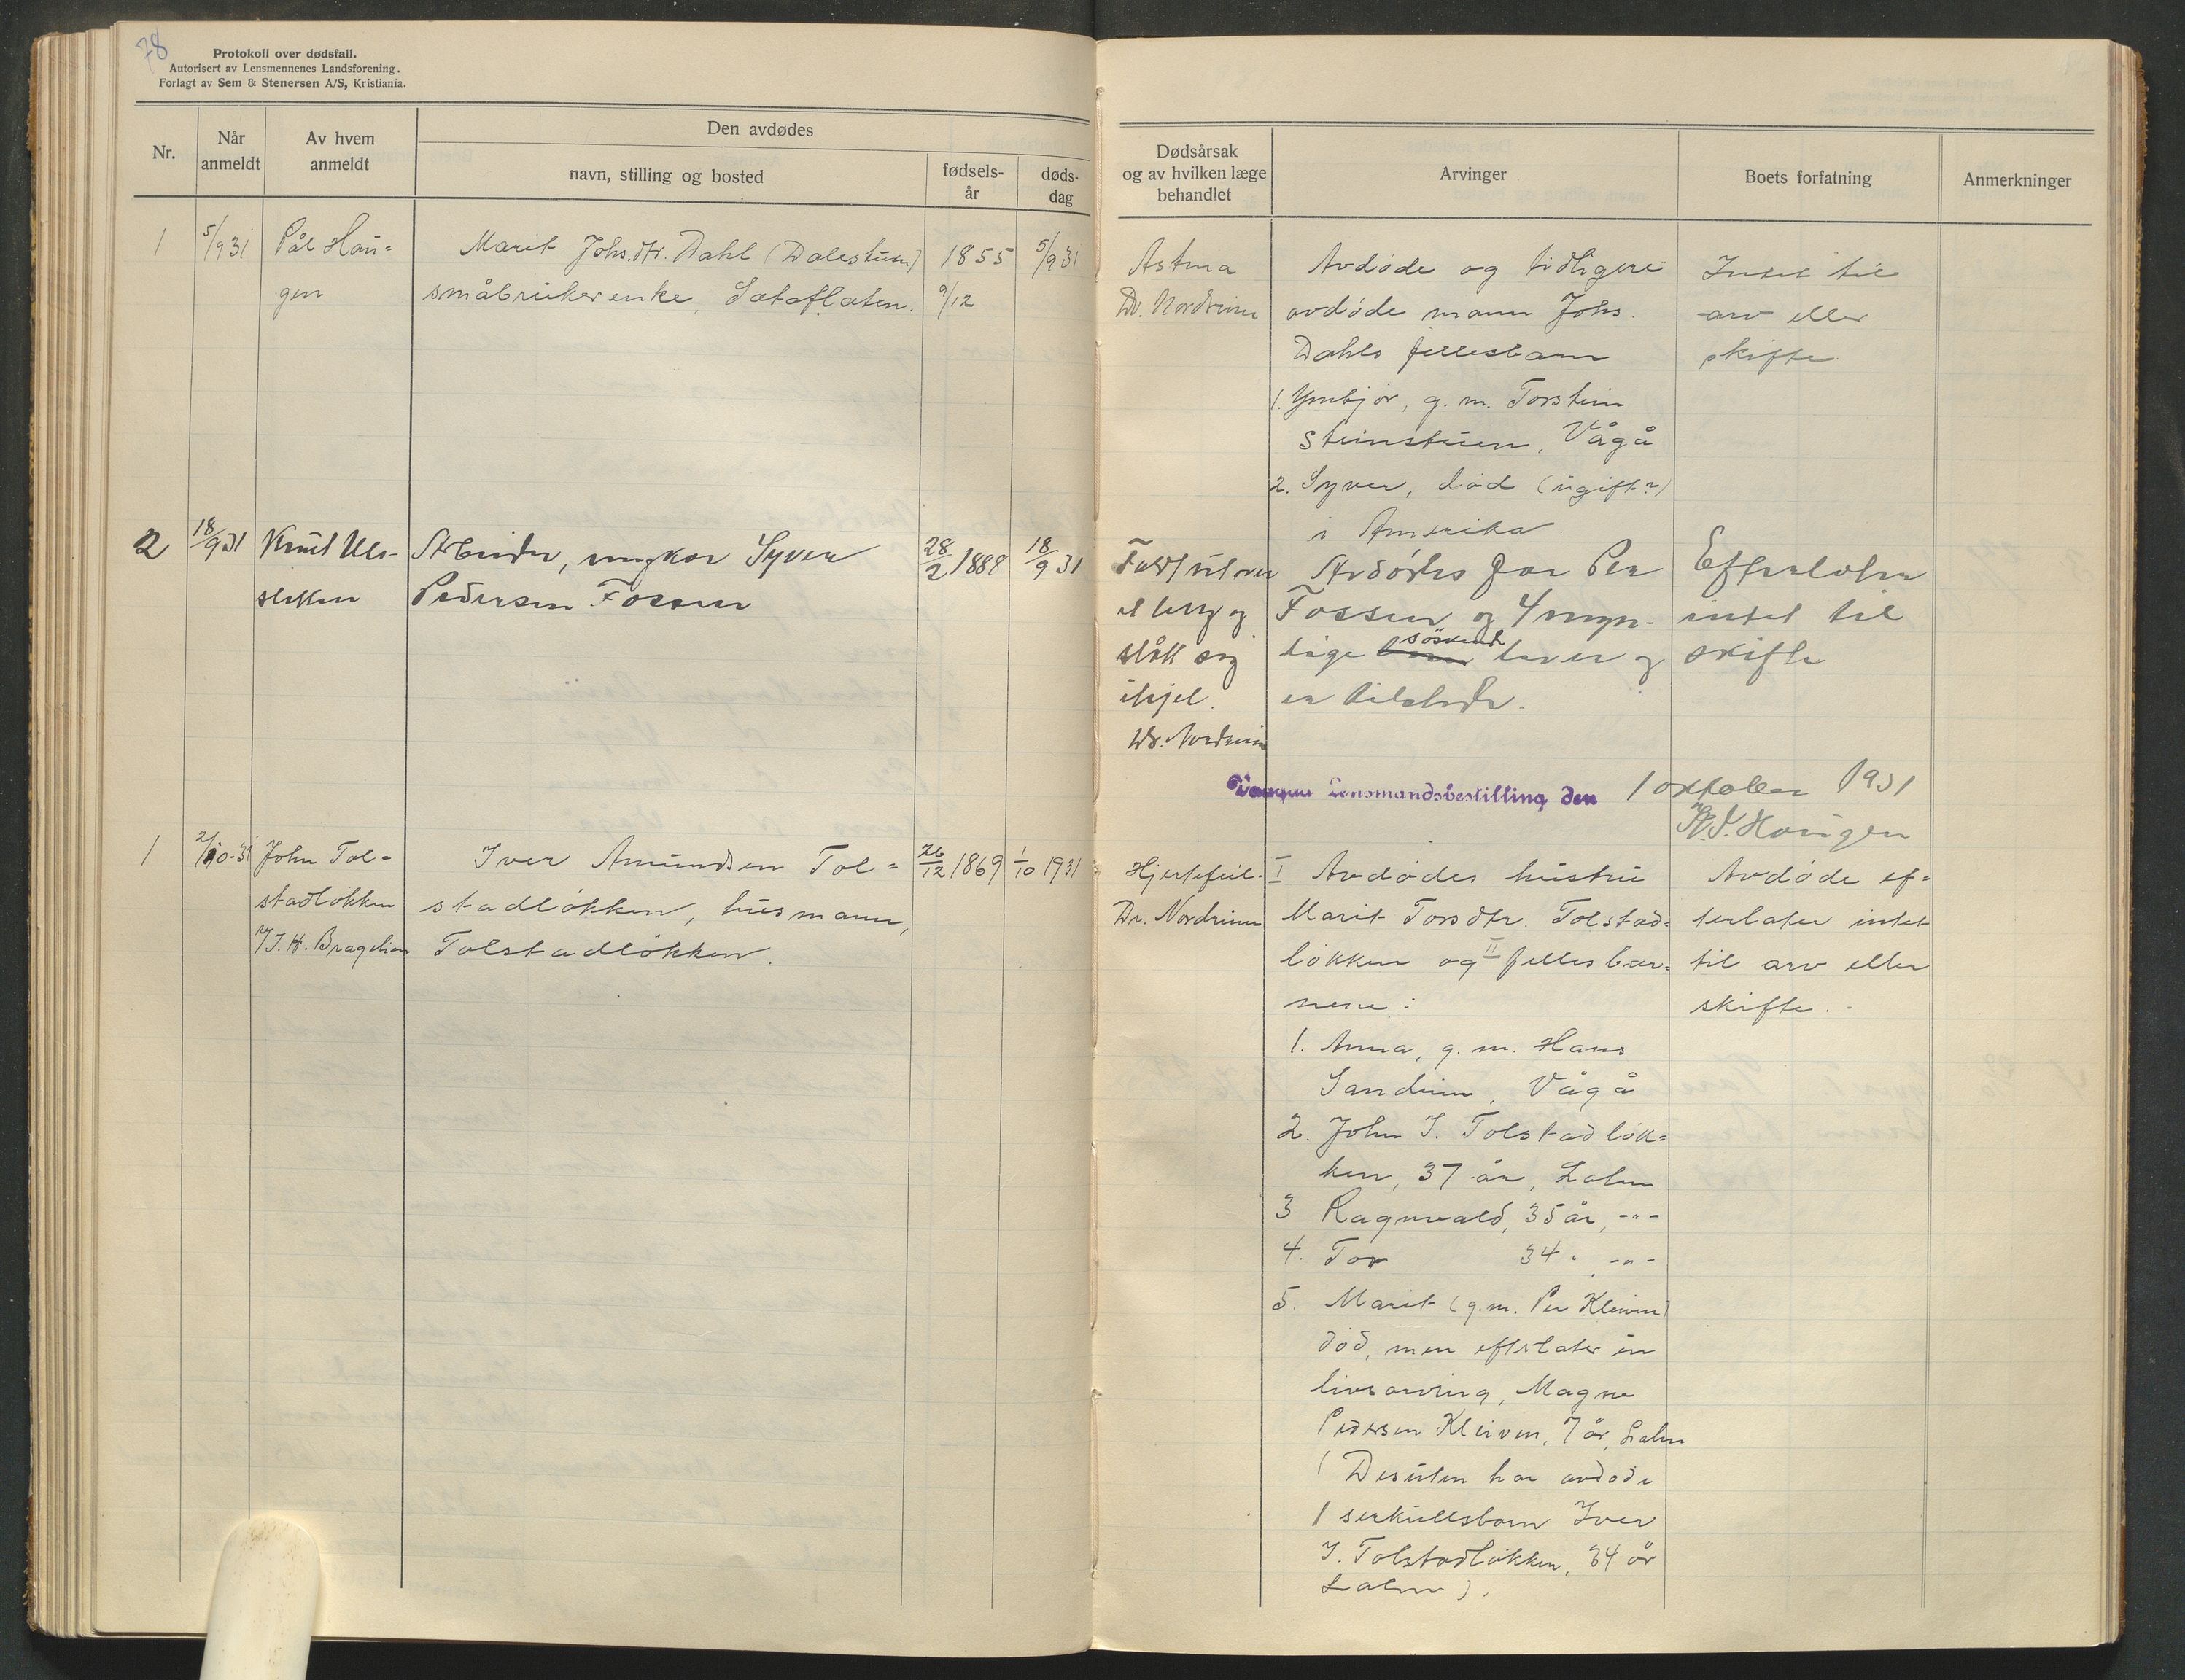 78
Protokoll over dødsfall.
Autorisert av Lensmennenes Landsforening.
Forlagt av Sem & Stenersen A/S, Kristiania.
Nr.
Når
anmeldt
Av hvem
anmeldt
Den avdødes
navn, stilling og bosted
fødsels-
år
døds-
dag
Dødsårsak
og av hvilken læge
behandlet
Arvinger
Boets forfatning
Anmerkninger
1
5/9 31
Pål Hau=
gen
Marit Johs.dtr. Dahl (Dalestuen)
småbrukerenke, Sataflaten.
1855
9/12
5/9 31
Astma
Dr. Nordrum
Avdøde og tidligere
avdøde mann Johs.
Dahls fellesbarn
1. Ymbjør, g. m. Torstein
Steinstuen, Vågå
2. Syver, død (ugift?)
i Amerika.
Intet til
arv eller
skifte.
2
18/9 31
Knut Uls-
Arbeider, ungkar Syver
Pedersen Fossen
28/2 1888
18/9 31
Faldt utover
et berg og
slått seg
ihjel.
Dr. Nordrum
Avdødes far Per
Fossen og 4 myn-
søskende
dige lever og
er tilstede.
Efterlater
intet til
skifte
Lensmandsbestilling den 1 oktober 1931
Haugen
1
2/10-31
John Tol=
stadløkken
v/ I. H. Bragelien
Iver Amundsen Tol=
stadløkken, husmann,
Tolstadløkken.
26/12 1869
1/10 1931
Hjertefeil.
Dr. Nordrum
I Avdødes hustru
Marit Torsdtr. Tolstad=
løkken og II fellesbar=
nene:
1. Anna, g. m. Hans
Sandum, Vågå
2. John I. Tolstadløk=
ken, 37 år, Lalm
3 Ragnvald, 35 år, -"-
4. Tor 34 " , -"-
5. Marit (g.m. Per Kleiven)
død, men efterlater en
livsarving, Magne
Pedersen Kleiven, 7 år, Lalm
(Desuten har avdøde
1 særkullsbarn Iver
I. Tolstadløkken, 34 år
Lalm).
Avdøde ef=
terlater intet
til arv eller
skifte.-